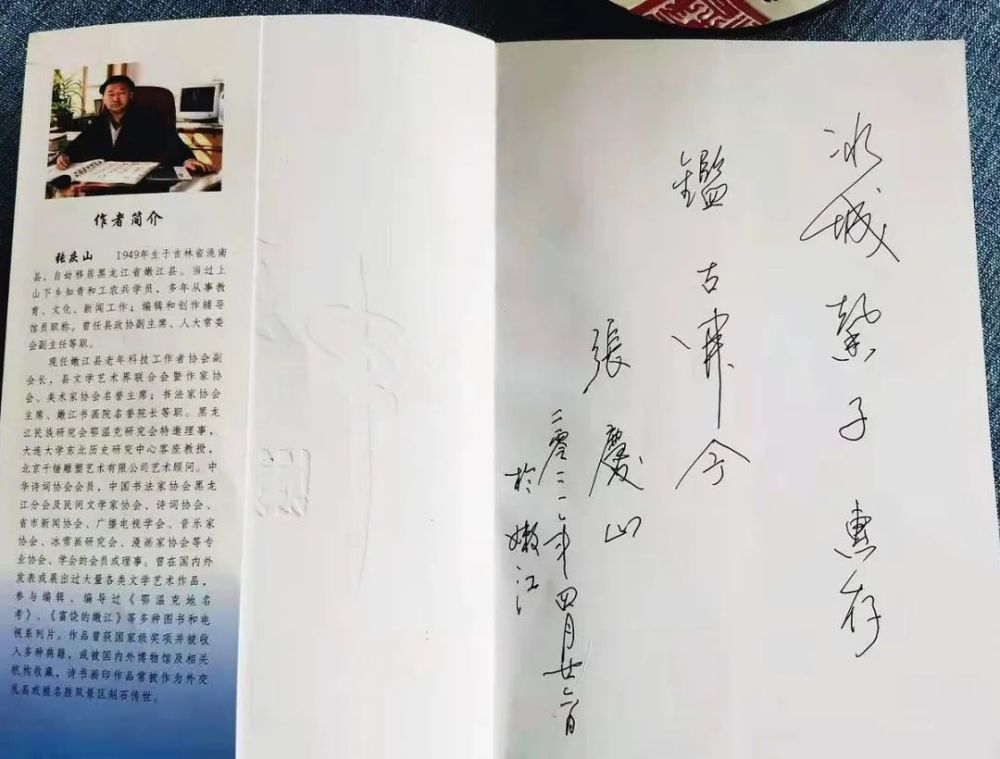 作者简介
张庆山 1949年生于吉林省洮南
县,自幼移居黑龙江省嫩江县。当过上
山下乡知青和工农兵学员,多年从事教
育、文化、新闻工作;编辑和创作辅导
馆员职称。曾任县政协副主席、人大常委
会副主任等职。
现任嫩江县老年科技工作者协会副
会长,县文学艺术界联合会暨作家协
会、美术家协会名誉主席;书法家协会
主席、嫩江书画院名誉院长等职。黑龙
江民族研究会鄂温克研究会特邀理事,
大连大学东北历史研究中心客座教授,
北京千锤雕塑艺术有限公司艺术顾问。中
华诗词协会会员,中国书法家协会黑龙
江分会及民间文学家协会、诗词协会、
省市新闻协会、广播电视学会、音乐家
协会、冰雪画研究会、漫画家协会等专
业协会、学会的会员或理事。曾在国内外
发表或展出过大量各类文学艺术作品,
参与编辑、编导过《鄂温克地名
考》、《富饶的嫩江》等多种图书和电
视系列片。作品曾获国家级奖项并被收
入多种典籍,或被国内外博物馆及相关
机构收藏,诗书画印作品常被作为外交
礼品或被名胜风景区刻石传世。
冰城 子 惠存
鑑古 今
張慶山
二零二一年四月廿六日
於嫩江